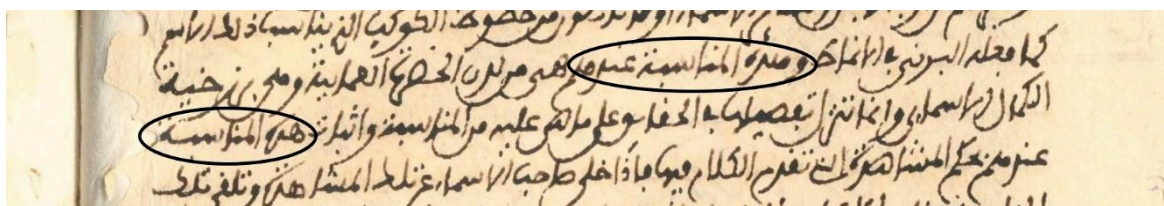 من حظوظ الكوكب الذي يناسب ذلك الاسم
كما فعله البوني في الانماط وهذه المناسبة عندهم هي من لدن الحضرة العمايية وهي برزخية
الكمال الاسماءي وانما تنزل تفصيلها في الحقايق على ما هي عليه من المناسبة واثبات هذه المناسبة
عندهم بحكم المشاهدة التي تقدم الكلام فيها فاذا خلى صاحب الاسماء عن تلك المشاهدة وتلقى تلك